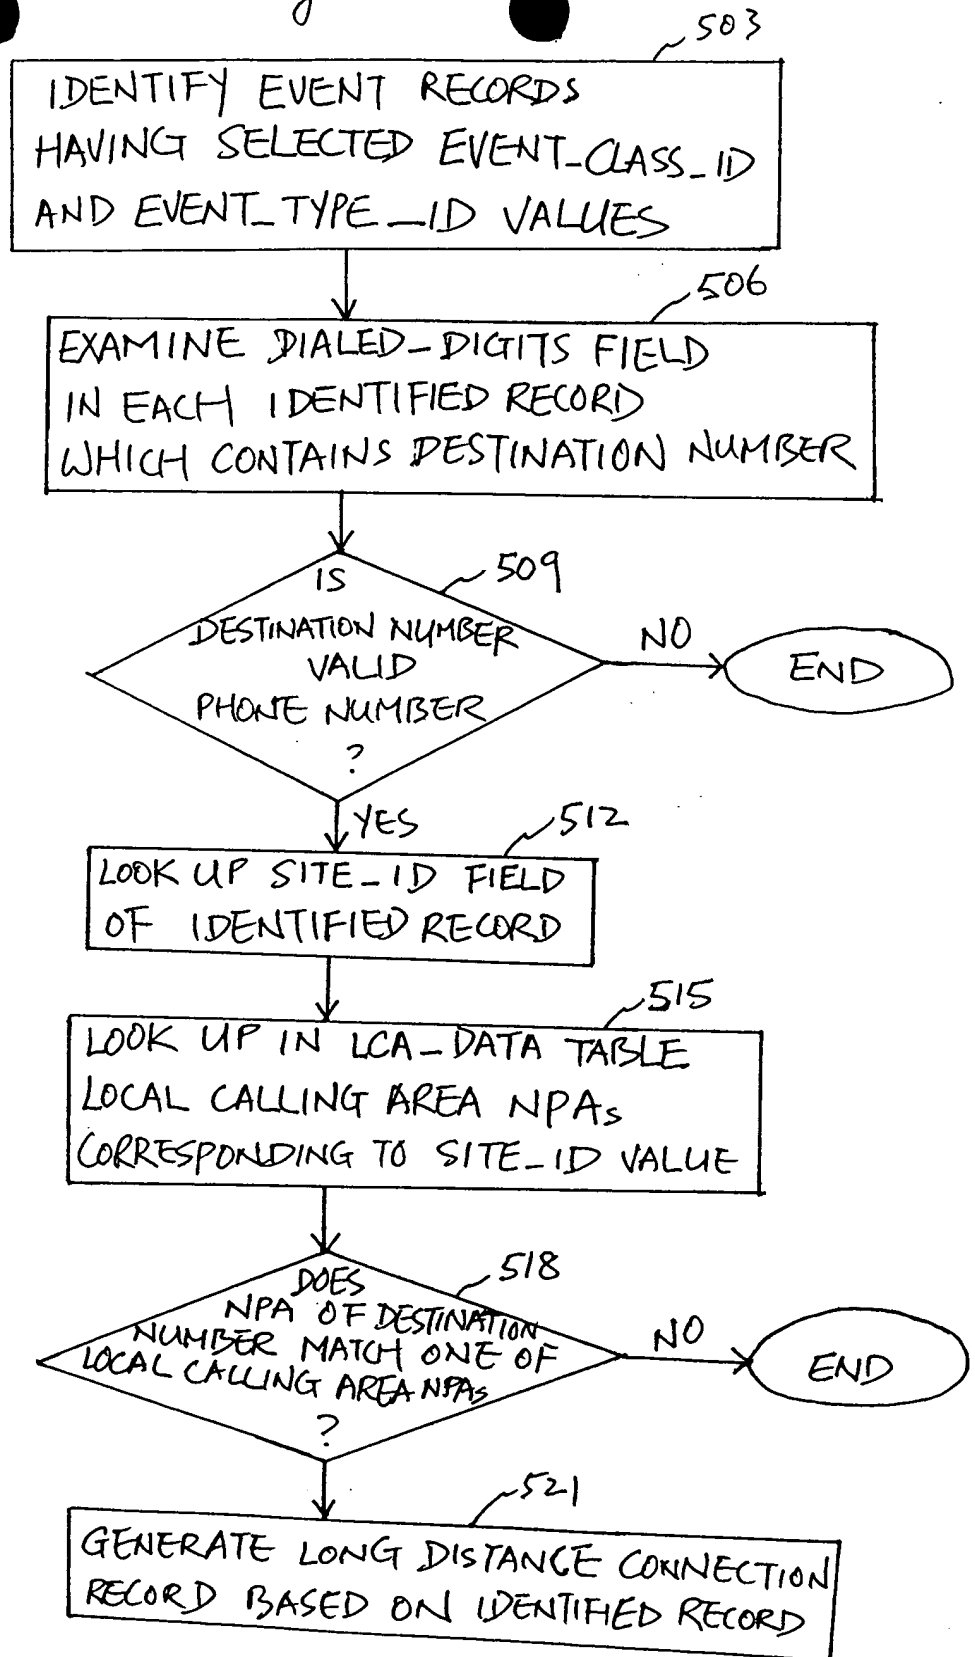 503
IDENTIFY EVENT RECORDS
HAVING SELECTED EVENT_CLASS_ID
AND EVENT_TYPE_ID VALUES
506
EXAMINE DIALED_DIGITS FIELD
IN EACH IDENTIFIED RECORD
WHICH CONTAINS DESTINATION NUMBER
509
IS
DESTINATION NUMBER
VALID
PHONE NUMBER
?
NO
END
YES
512
LOOK UP SITE_ID FIELD
OF IDENTIFIED RECORD
515
LOOK UP IN LCA_DATA TABLE
LOCAL CALLING AREA NPAs
CORRESPONDING TO SITE_ID VALUE
518
DOES
NPA OF DESTINATION
NUMBER MATCH ONE OF
LOCAL CALLING AREA NPAs
?
NO
END
521
GENERATE LONG DISTANCE CONNECTION
RECORD BASED ON IDENTIFIED RECORD